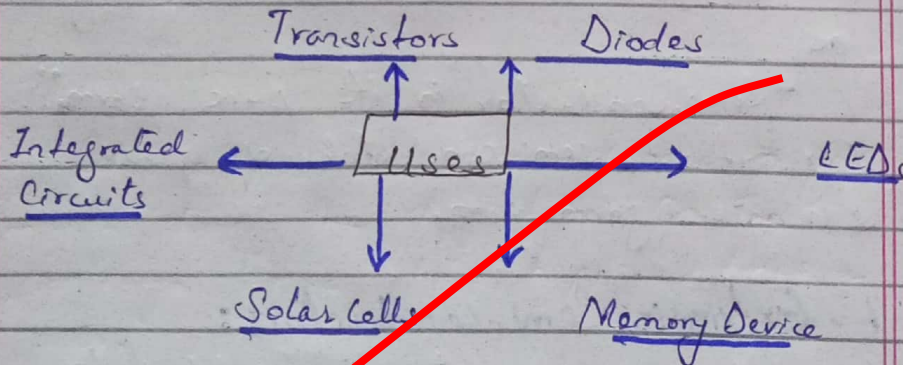 Transistors Diodes
Integrated
Circuits
Uses
LEDs
Solar Cells
Memory Device